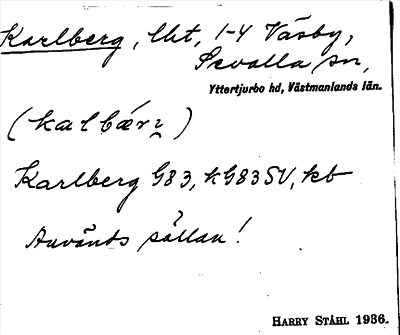 Karlberg, lht, 1-4 Väsby,
Sevalla sn,
Yttertjurbo hd, Västmanlands län.
(kalbærɩ)
Karlberg G83, kG83SV, kb
Används sällan!
HARRY STÅHL 1936.